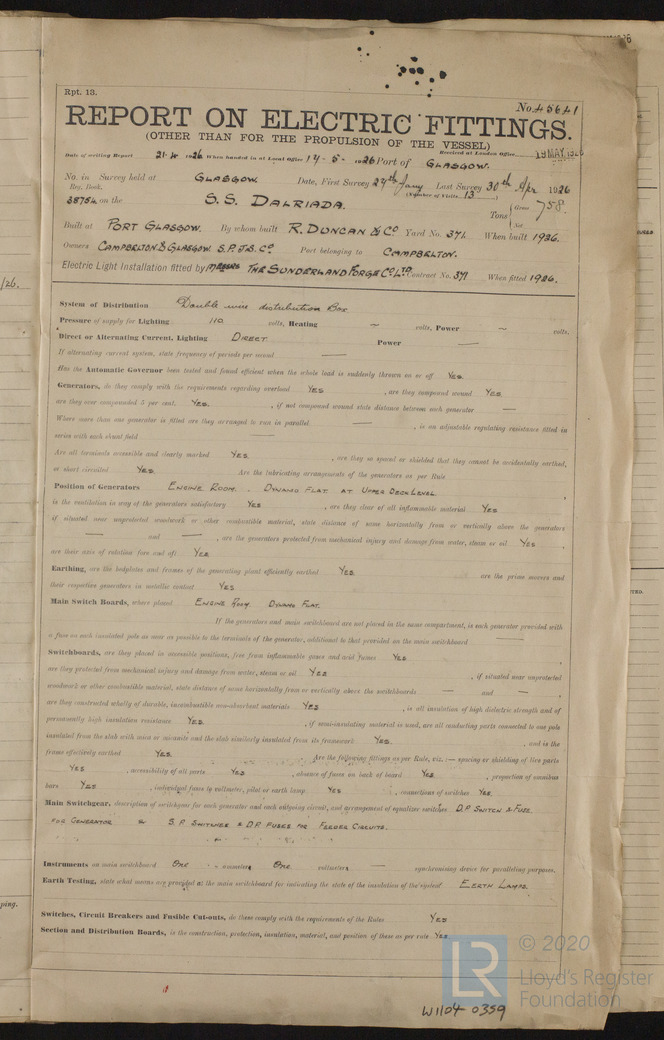 Rpt. 13.
No. 45641
REPORT ON ELECTRIC FITTINGS.
(OTHER THAN FOR THE PROPULSION OF THE VESSEL)
Received at London Office 19 MAY 1926
Date of writing Report 21-4-1926 When handed in at Local Office 14-5-1926 Port of GLASGOW.
No. in Survey held at GLASGOW. Date, First Survey 27th Jany Last Survey 30th Apr 1926
Reg. Book. (Number of Visits 13)
38754 on the S.S. DALRIADA. Tons { Gross 758
Net
Built at PORT GLASGOW. By whom built R. DUNCAN & Co Yard No. 371. When built 1926.
Owners CAMPBELTON & GLASGOW S.P.J.S. Co Port belonging to CAMPBELTON.
Electric Light Installation fitted by MESSRS THE SUNDERLAND FORGE Co LTD. Contract No. 371 When fitted 1926.
System of Distribution Double wire distribution Box
Pressure of supply for Lighting 110 volts, Heating ~ volts, Power ~ volts.
Direct or Alternating Current, Lighting DIRECT. Power —
If alternating current system, state frequency of periods per second —
Has the Automatic Governor been tested and found efficient when the whole load is suddenly thrown on or off YES.
Generators, do they comply with the requirements regarding overload YES , are they compound wound YES
are they over compounded 5 per cent. YES. , if not compound wound state distance between each generator —
Where more than one generator is fitted are they arranged to run in parallel — , is an adjustable regulating resistance fitted in
series with each shunt field —
Are all terminals accessible and clearly marked YES , are they so spaced or shielded that they cannot be accidentally earthed,
or short circuited YES. Are the lubricating arrangements of the generators as per Rule
Position of Generators ENGINE ROOM. DYNAMO FLAT AT UPPER DECK LEVEL
is the ventilation in way of the generators satisfactory YES , are they clear of all inflammable material YES
if situated near unprotected woodwork or other combustible material, state distance of same horizontally from or vertically above the generators
— and — , are the generators protected from mechanical injury and damage from water, steam or oil YES ,
are their axis of rotation fore and aft YES
Earthing, are the bedplates and frames of the generating plant efficiently earthed YES. are the prime movers and
their respective generators in metallic contact YES.
Main Switch Boards, where placed ENGINE ROOM DYNAMO FLAT.
If the generators and main switchboard are not placed in the same compartment, is each generator provided with
a fuse on each insulated pole as near as possible to the terminals of the generator, additional to that provided on the main switchboard —
Switchboards, are they placed in accessible positions, free from inflammable gases and acid fumes YES ,
are they protected from mechanical injury and damage from water, steam or oil YES , if situated near unprotected
woodwork or other combustible material, state distance of same horizontally from or vertically above the switchboards — and — ,
are they constructed wholly of durable, incombustible non-absorbent materials YES , is all insulation of high dielectric strength and of
permanently high insulation resistance YES. , if semi-insulating material is used, are all conducting parts connected to one pole
insulated from the slab with mica or micanite and the slab similarly insulated from its framework YES. , and is the
frame effectively earthed YES. Are the following fittings as per Rule, viz.:— spacing or shielding of live parts
YES , accessibility of all parts YES , absence of fuses on back of board YES , proportion of omnibus
bars YES , individual fuses to voltmeter, pilot or earth lamp YES , connections of switches YES.
Main Switchgear, description of switchgear for each generator and each outgoing circuit, and arrangement of equalizer switches D.P SWITCH & FUSE
FOR GENERATOR & S.P. SWITCHES & D.P. FUSES FOR FEEDER CIRCUITS.
Instruments on main switchboard One ammeters One voltmeters — synchronising device for paralleling purposes.
Earth Testing, state what means are provided at the main switchboard for indicating the state of the insulation of the system EERTH LAMPS.
Switches, Circuit Breakers and Fusible Cut-outs, do these comply with the requirements of the Rules YES
Section and Distribution Boards, is the construction, protection, insulation, material, and position of these as per rule YES
LR
© 2020
Lloyd's Register
Foundation
W1104 0359
/26.
ping.